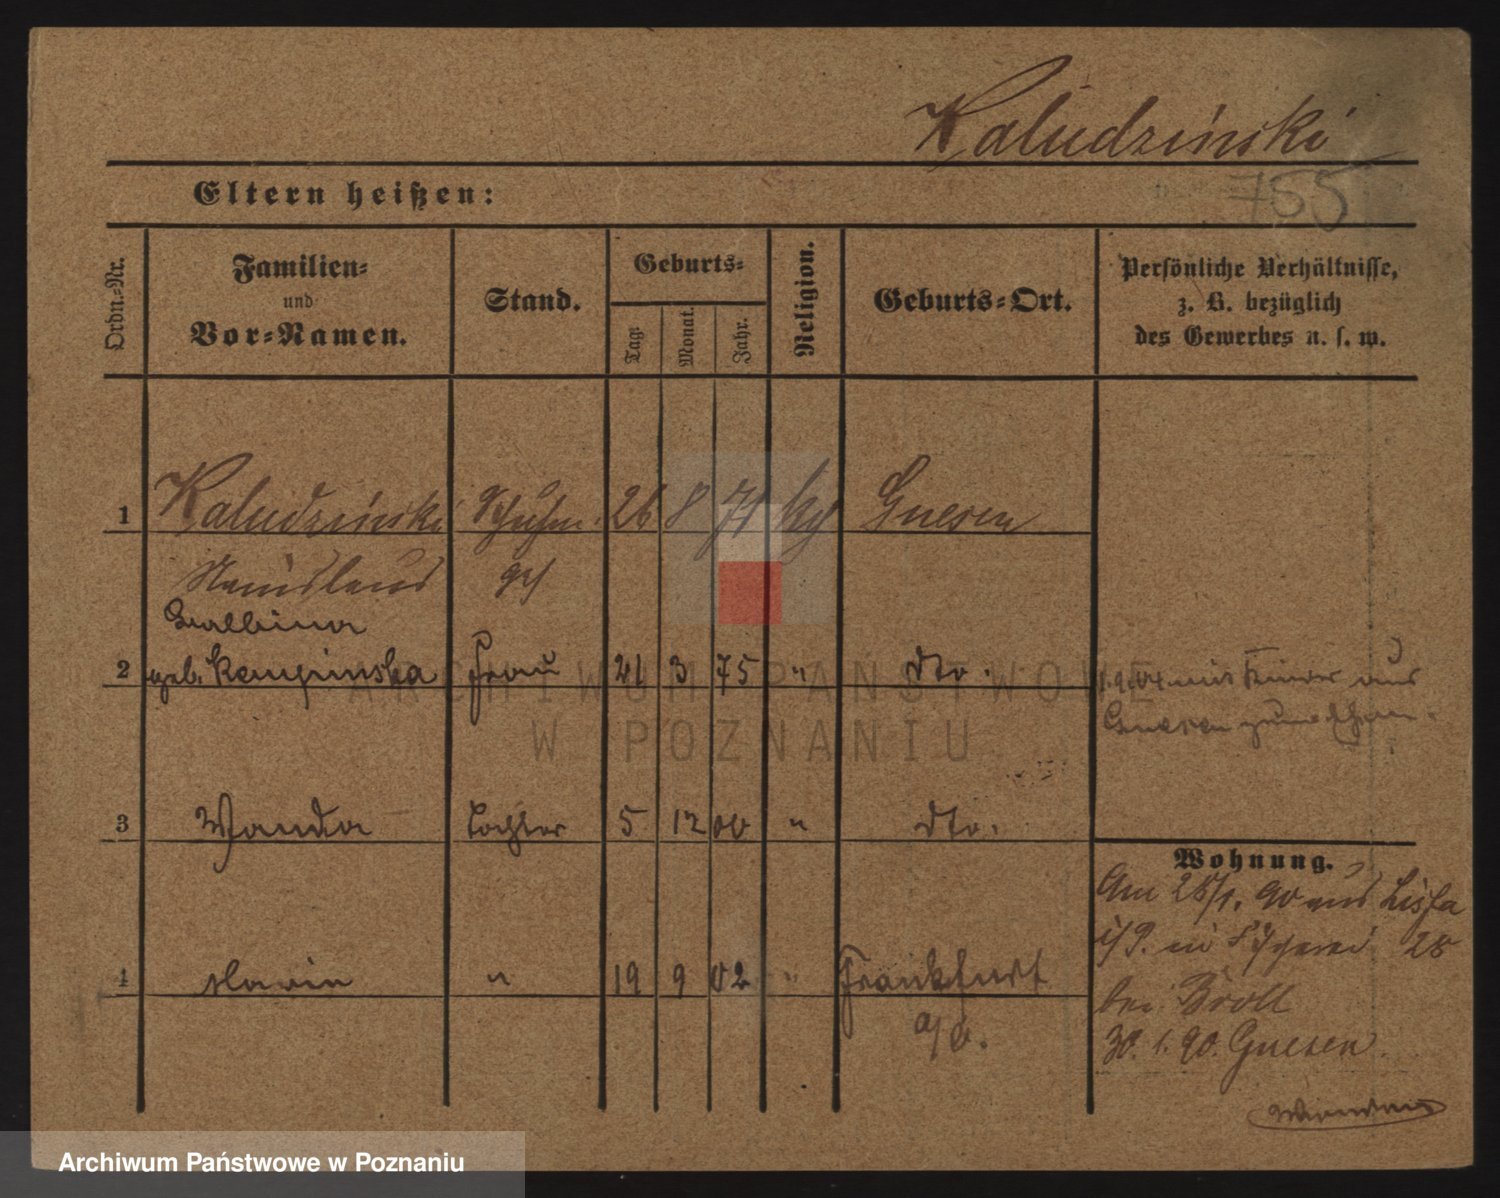 Kaludzinski
755
Eltern heißen:
Ordn.-Nr.
Familien-
und
Vor-Namen.
Stand.
Geburts-
Tag:
Monat.
Jahr.
Religion.
Geburts-Ort.
Persönliche Verhältnisse,
z. B. bezüglich
des Gewerbes u. s. w.
1 Kaludzinski Schuhm. 26 8 71 kg Gnesen
Stanislaus ges
Balbina
2 geb. Kempinska Frau 21 3 75 " dto.
1.9.04 mit Kinder aus
Gnesen
3 Wanda Tochter 5 12 00 " dto.
Wohnung.
Am 28/1. 90 aus Lissa
i/P. in Fischerei 28
4 Marie " 19 9 02 " Frankfurt
a/O.
bei Broll
30. 1. 90. Gnesen.
ARCHIWUM PAŃSTWOWE
W POZNANIU
Archiwum Państwowe w Poznaniu